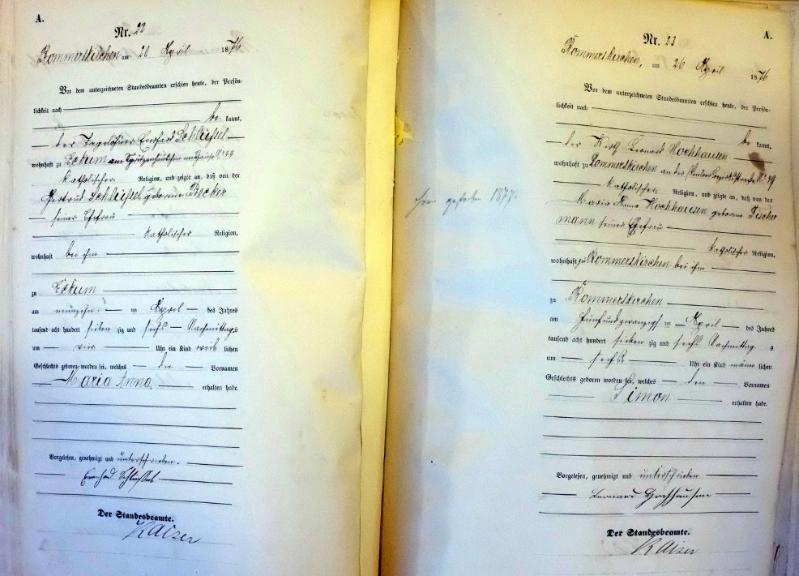 A.
Nr. 22
Rommerskirchen am 26 April 1876
Vor dem unterzeichneten Standesbeamten erschien heute, der Persön-
lichkeit nach
be kannt,
der Tagelöhner Schlüssel
wohnhaft zu Eckum
katholischer Religion, und zeigte an, daß von der
Gertrud Schlüssel geborene Decker
seiner Ehefrau
katholischer Religion,
wohnhaft bei ihm
zu Eckum
am neunzehn ten April des Jahres
tausend acht hundert sieben zig und sechs Nachmittags
um vier Uhr ein Kind weib lichen
Geschlechts geboren worden sei, welches die Vornamen
Maria Anna
erhalten habe.
Vorgelesen, genehmigt und unterschrieben.
Schlüssel
Der Standesbeamte.
Kaiser
gestorben 1877.
A.
Nr. 23
Rommerskirchen, am 26 April 1876
Vor dem unterzeichneten Standesbeamten erschien heute, der Persön-
lichkeit nach
be kannt,
der Leonard Hochhausen
wohnhaft zu Rommerskirchen an der № 49
katholischer Religion, und zeigte an, daß von der
Maria Anna Hochhausen geborene Fischer
mann seiner Ehefrau
katholischer Religion,
wohnhaft zu Rommerskirchen bei ihm
zu Rommerskirchen
am fünfundzwanzigsten April des Jahres
tausend acht hundert sieben zig und sechs Nachmittag s
um sechs Uhr ein Kind männ lichen
Geschlechts geboren worden sei, welches den Vornamen
Simon
erhalten habe.
Vorgelesen, genehmigt und unterschrieben
Leonard Hochhausen
Der Standesbeamte.
Kaiser